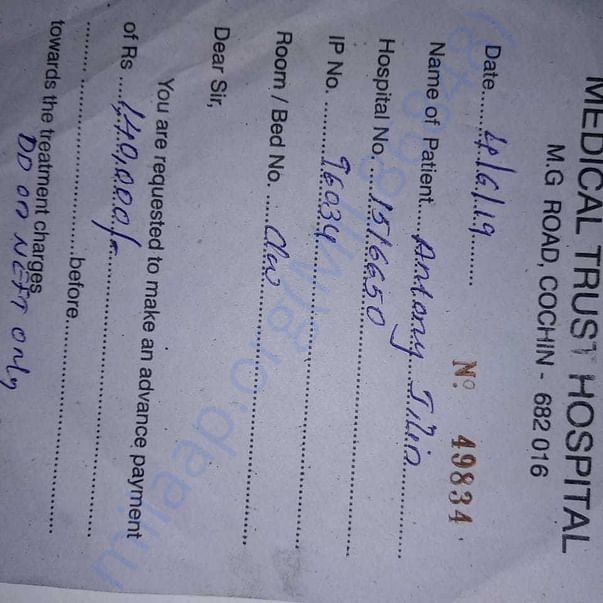 MEDICAL TRUST HOSPITAL
M.G ROAD, COCHIN - 682 016
No 49834
Date.....4/6/19........
Name of Patient.... Antony ..................
Hospital No....1516650.................
IP No. ........96034.................
Room / Bed No. ....................
Dear Sir,
You are requested to make an advance payment
of Rs ....140,000/-.................
.................................before.................
towards the treatment charges
DD or NEFT only
milaap.org